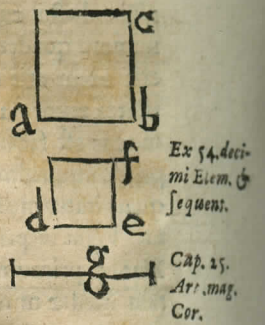 c
a b
Ex 54. deci-
mi Elem. &
sequent.
f
d e
g
Cap. 25.
Art. mag.
Cor.